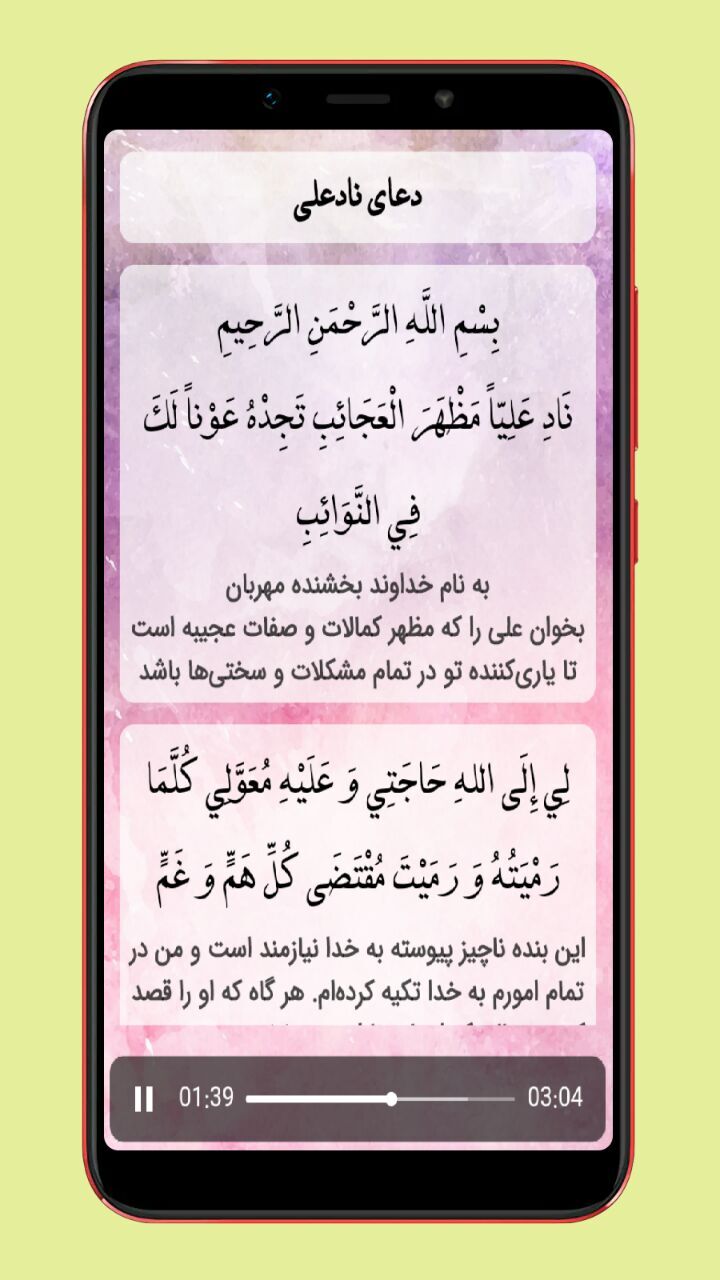 دعای نادعلی
بِسْمِ اللَّهِ الرَّحْمَنِ الرَّحِيمِ
نَادِ عَلِيّاً مَظْهَرَ الْعَجَائِبِ تَجِدْهُ عَوْناً لَكَ
فِي النَّوَائِبِ
به نام خداوند بخشنده مهربان
بخوان علی را که مظهر کمالات و صفات عجیبه است
تا یاری‌کننده تو در تمام مشکلات و سختی‌ها باشد
لِي إِلَى اللهِ حَاجَتِي وَ عَلَيْهِ مُعَوَّلِي كُلَّمَا
رَمْيَتُهُ وَ رَمَيْتَ مُقْتَضَى كُلِّ هَمٍّ وَ غَمٍّ
این بنده ناچیز پیوسته به خدا نیازمند است و من در
تمام امورم به خدا تکیه کرده‌ام. هر گاه که او را قصد
01:39
03:04